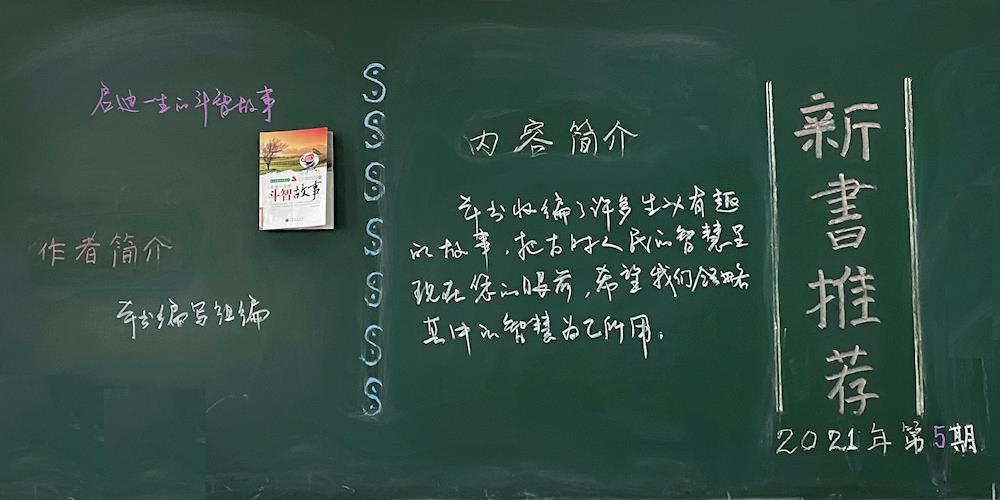 启迪一生的斗智故事
斗智故事
作者简介
本书编写组编
内容简介
本书收编了许多生动有趣
的故事，把古时人民的智慧呈
现在您的眼前，希望我们领略
其中的智慧为己所用。
新書推荐
2021年第5期